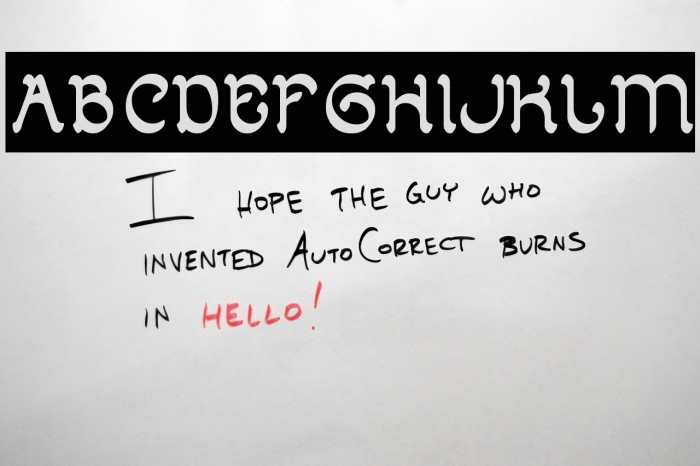 ABCDEFGHIJKLM
I HOPE THE GUY WHO
INVENTED AUTOCORRECT BURNS
IN HELLO!